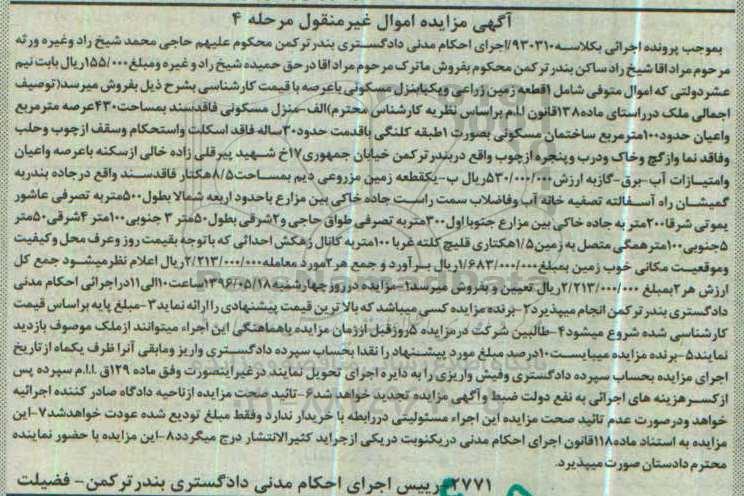 آگهی مزایده اموال غیرمنقول مرحله ۴
بموجب پرونده اجرائی بکلاسه۹۳۰۳۱۰/اجرای احکام مدنی دادگستری بندرترکمن محکوم علیهم حاجی محمد شیخ راد وغیره ورثه
مرحوم مراداقا شیخ راد ساکن بندرترکمن محکوم بفروش ماترک مرحوم مراداقا درحق حمیده شیخ راد و غیره ومبلغ۱۵۵/۰۰۰ریال بابت نیم
عشردولتی که اموال متوفی شامل ۱قطعه زمین زراعی ویکبابمنزل مسکونی باعرصه با قیمت کارشناسی بشرح ذیل بفروش میرسد(توصیف
اجمالی ملک درراستای ماده۱۳۸قانون ا.ا.م براساس نظریه کارشناس محترم)الف-منزل مسکونی فاقدسند بمساحت۴۳۰عرصه مترمربع
واعیان حدود۱۰۰مترمربع ساختمان مسکونی بصورت ۱طبقه کلنگی باقدمت حدود۳۰ساله فاقد اسکلت واستحکام وسقف ازچوب وحلب
وفاقد نما وازگچ وخاک ودرب و پنجره ازچوب واقع دربندرترکمن خیابان جمهوری۱۷خ شهید پیرقلی زاده خالی ازسکنه باعرصه واعیان
وامتیازات آب-برق-گازبه ارزش۵۳۰/۰۰۰/۰۰۰ریال ب-یکقطعه زمین مزروعی دیم بمساحت۸/۵هکتار فاقدسند واقع درجاده بندربه
گمیشان راه آسفالته تصفیه خانه آب وفاضلاب سمت راست جاده خاکی بین مزارع باحدود اربعه شمالا بطول۵۰۰متربه تصرفی عاشور
یموتی شرقا۲۰۰متربه جاده خاکی بین مزارع جنوبا اول۳۰۰متربه تصرفی طواق حاجی و۲شرقی بطول۵۰متر ۳ جنوبی۱۰۰متر ۴شرقی۵۰متر
۵جنوبی۱۰۰مترهمگی متصل به زمین۱/۵هکتاری قلیچ کلته غربا ۱۰۰متربه کانال زهکش احداثی که باتوجه بقیمت روز وعرف محل وکیفیت
وموقعیت مکانی خوب زمین بمبلغ۱/۶۸۳/۰۰۰/۰۰۰ریال برآورد و جمع هر۲مورد معامله۲/۲۱۳/۰۰۰/۰۰۰ریال اعلام نظرمیشود جمع کل
ارزش هر۲بمبلغ ۲/۲۱۳/۰۰۰/۰۰۰ریال تعیین و بفروش میرسد۱-مزایده درروزچهارشنبه۱۳۹۶/۰۵/۱۸ساعت۱۰الی۱۱دراجرائی احکام مدنی
دادگستری بندرترکمن انجام میپذیرد۲-برنده مزایده کسی میباشد که بالاترین قیمت پیشنهادی را ارائه نماید۳-مبلغ پایه براساس قیمت
کارشناسی شده شروع میشود۴-طالبین شرکت درمزایده ۵روزقبل اززمان مزایده باهماهنگی این اجراء میتوانند ازملک موصوف بازدید
نمایند۵-برنده مزایده میبایست۱۰درصد مبلغ مورد پیشنهاد را نقدا بحساب سپرده دادگستری واریز ومابقی آنرا ظرف یکماه ازتاریخ
اجرای مزایده بحساب سپرده دادگستری وفیش واریزی را به دایره اجرای تحویل نمایند درغیراینصورت وفق ماده ۱۲۹ق .ا.ا.م سپرده پس
ازکسرهزینه های اجرائی به نفع دولت ضبط و آگهی مزایده تجدید خواهد شد۶-تائید صحت مزایده ازناحیه دادگاه صادر کننده اجرائیه
خواهد ودرصورت عدم تائید صحت مزایده این اجراء مسئولیتی دررابطه با خریدار ندارد وفقط مبلغ تودیع شده عودت خواهدشد۷-این
مزایده به استناد ماده۱۱۸قانون اجرای احکام مدنی دریکنوبت دریکی ازجراید کثیرالانتشار درج میگردد۸-این مزایده با حضور نماینده
محترم دادستان صورت میپذیرد.
۲۷۷۱-رییس اجرای احکام مدنی دادگستری بندرترکمن- فضیلت